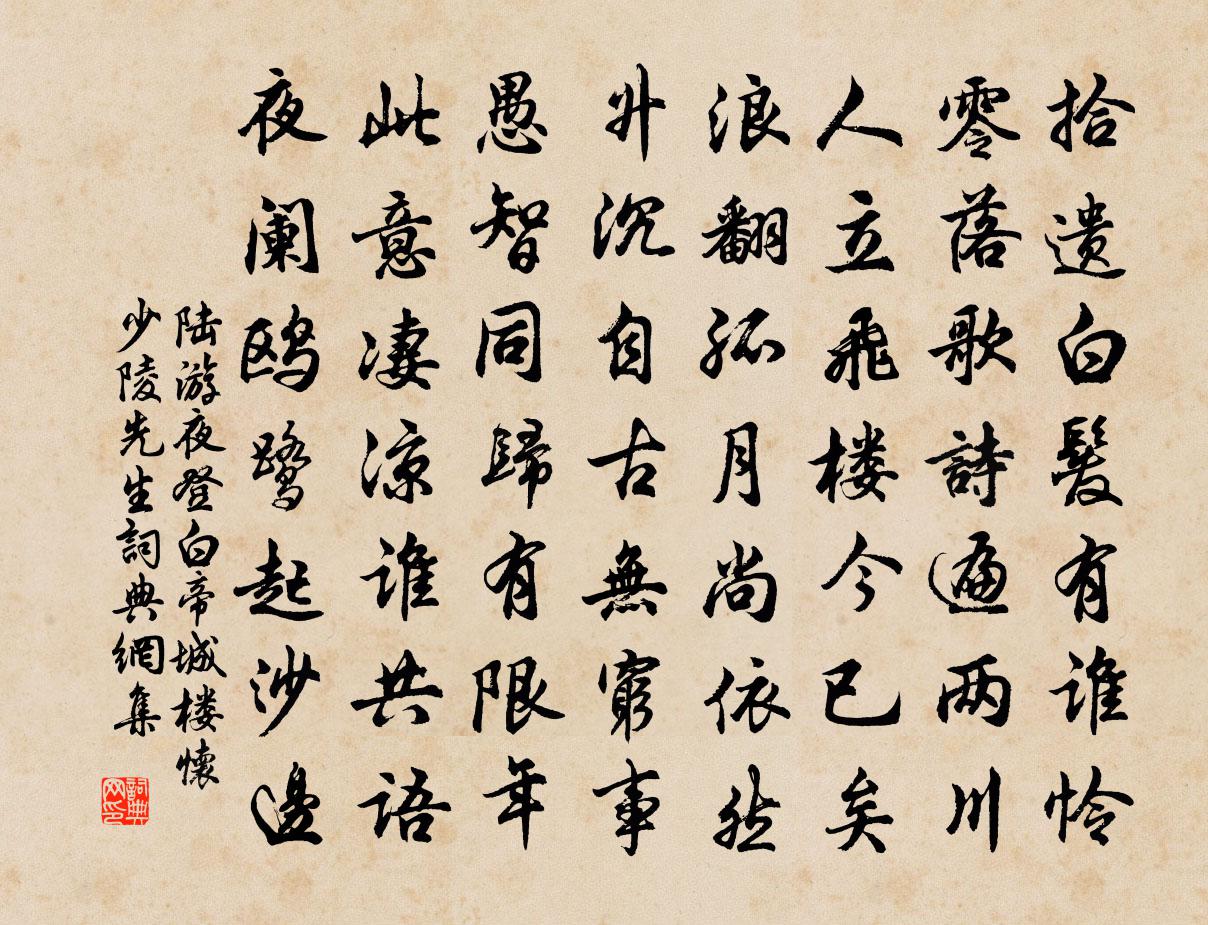 拾遗白髮有谁怜
零落歌詩遍两川
人立飛楼今已矣
浪翻孤月尚依然
升沉自古無窮事
愚智同歸有限年
此意凄凉谁共語
夜阑鸥鹭起沙邊
陆游夜登白帝城楼懷
少陵先生詞典網集
詞典
网印